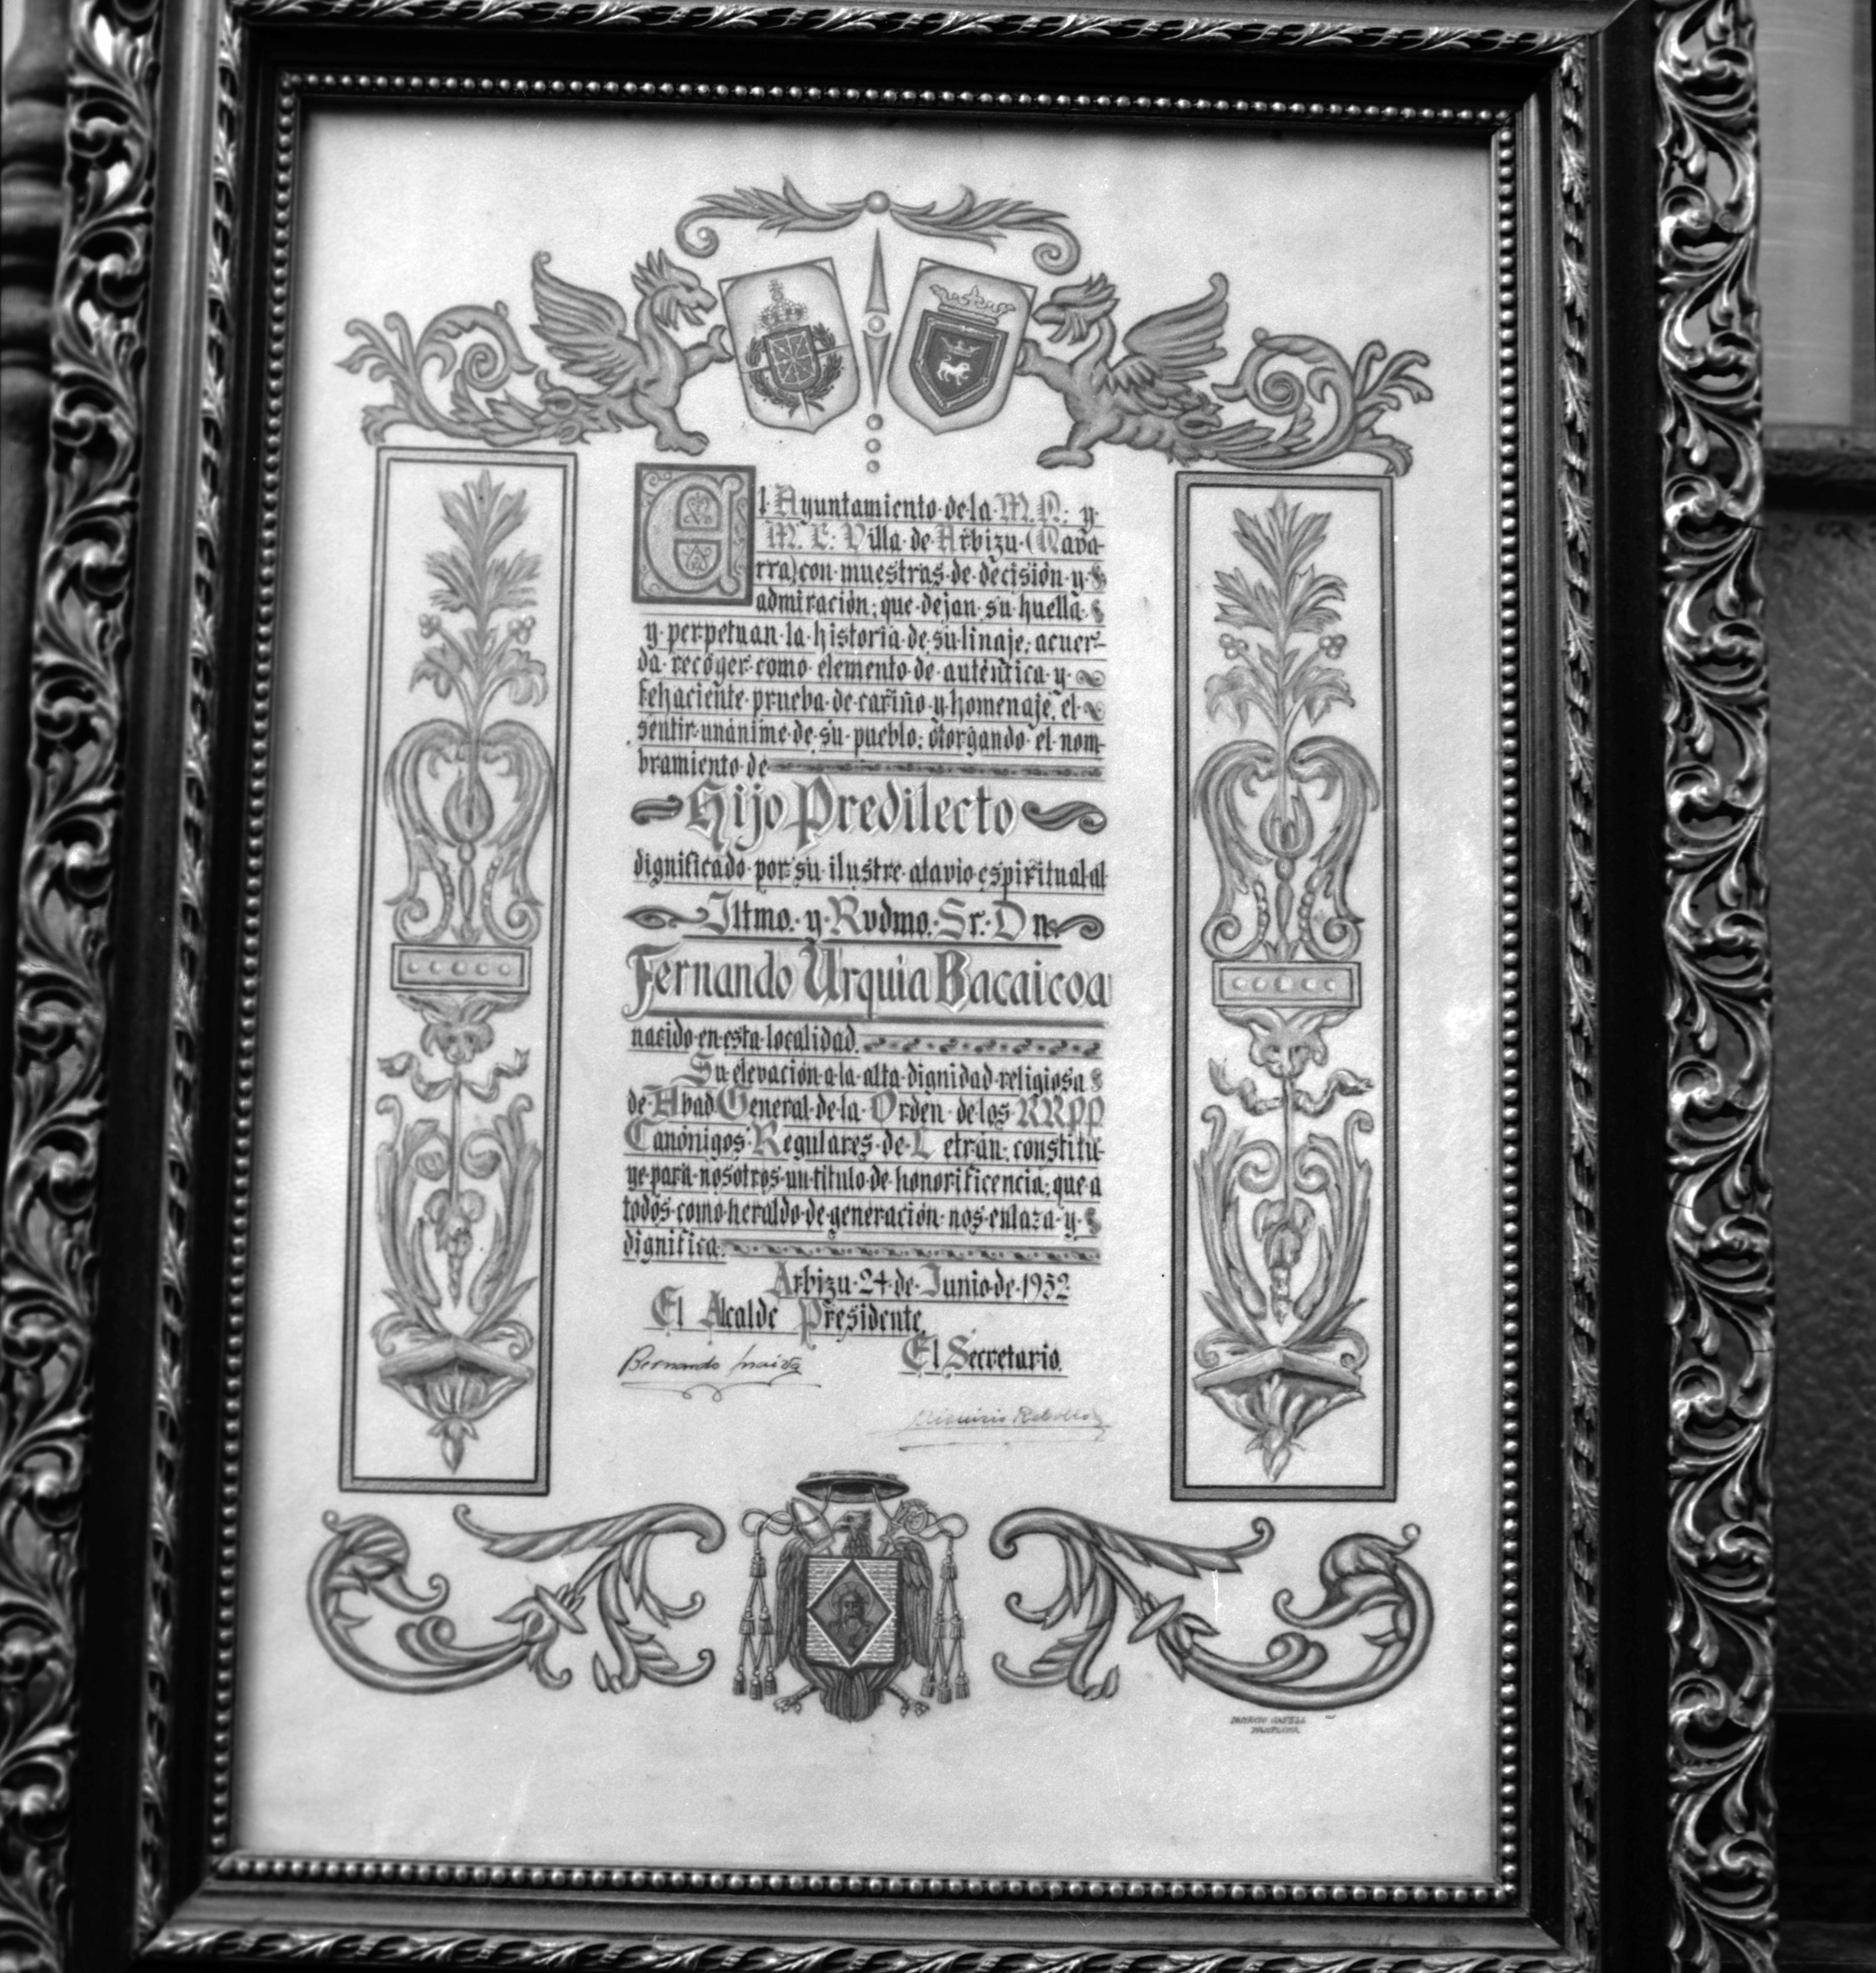 El Ayuntamiento de la M. N. y
M. L. Villa de Arbizu (Nava-
rra) con muestras de decisión y
admiración, que dejan su huella
y perpetuan la historia de su linaje, acuer-
da recoger como elemento de auténtica y
fehaciente prueba de cariño y homenaje, el
sentir unánime de su pueblo; otorgando el nom-
bramiento de
Hijo Predilecto
dignificado por su ilustre atavio espiritual al
Iltmo. y Rvdmo. Sr. Dn
Fernando Urquia Bacaicoa
nacido en esta localidad.
Su elevación a la alta dignidad religiosa
de Abad General de la Orden de los RRPP
Canónigos Regulares de Letrán, constitu-
ye para nosotros un título de honorificencia, que a
todos como heraldo de generación nos enlaza y
dignifica.
Arbizu 24 de Junio de 1952
El Alcalde Presidente,
El Secretario.
Bernando
Rebollo
PAMPLONA